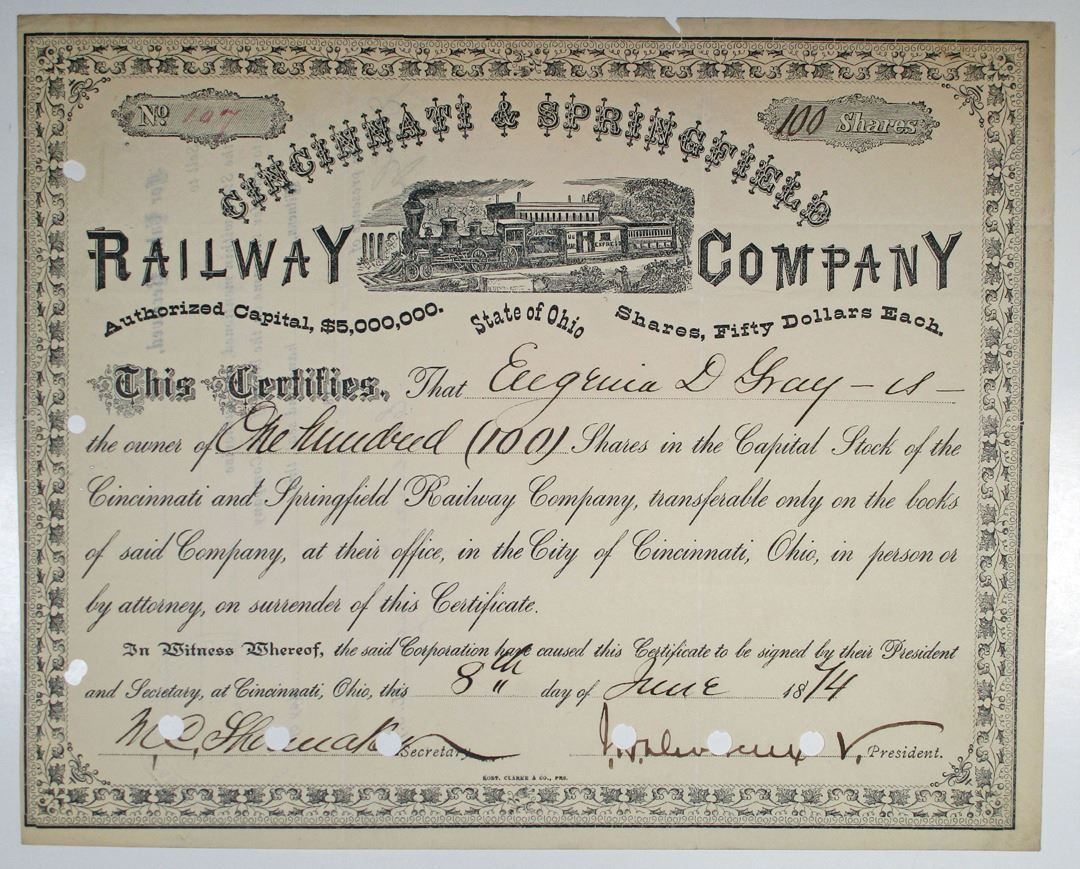 No 107
100 Shares
CINCINNATI & SPRINGFIELD
RAILWAY COMPANY
Authorized Capital, $5,000,000. State of Ohio Shares, Fifty Dollars Each.
This Certifies, That Eugenia D Gray – is –
the owner of One hundred (100) Shares in the Capital Stock of the
Cincinnati and Springfield Railway Company, transferable only on the books
of said Company, at their office, in the City of Cincinnati, Ohio, in person or
by attorney, on surrender of this Certificate.
In Witness Whereof, the said Corporation have caused this Certificate to be signed by their President
and Secretary, at Cincinnati, Ohio, this 8th day of June 1874
M.C. Shoemaker Secretary. V. President.
ROBT. CLARKE & CO., PRS.